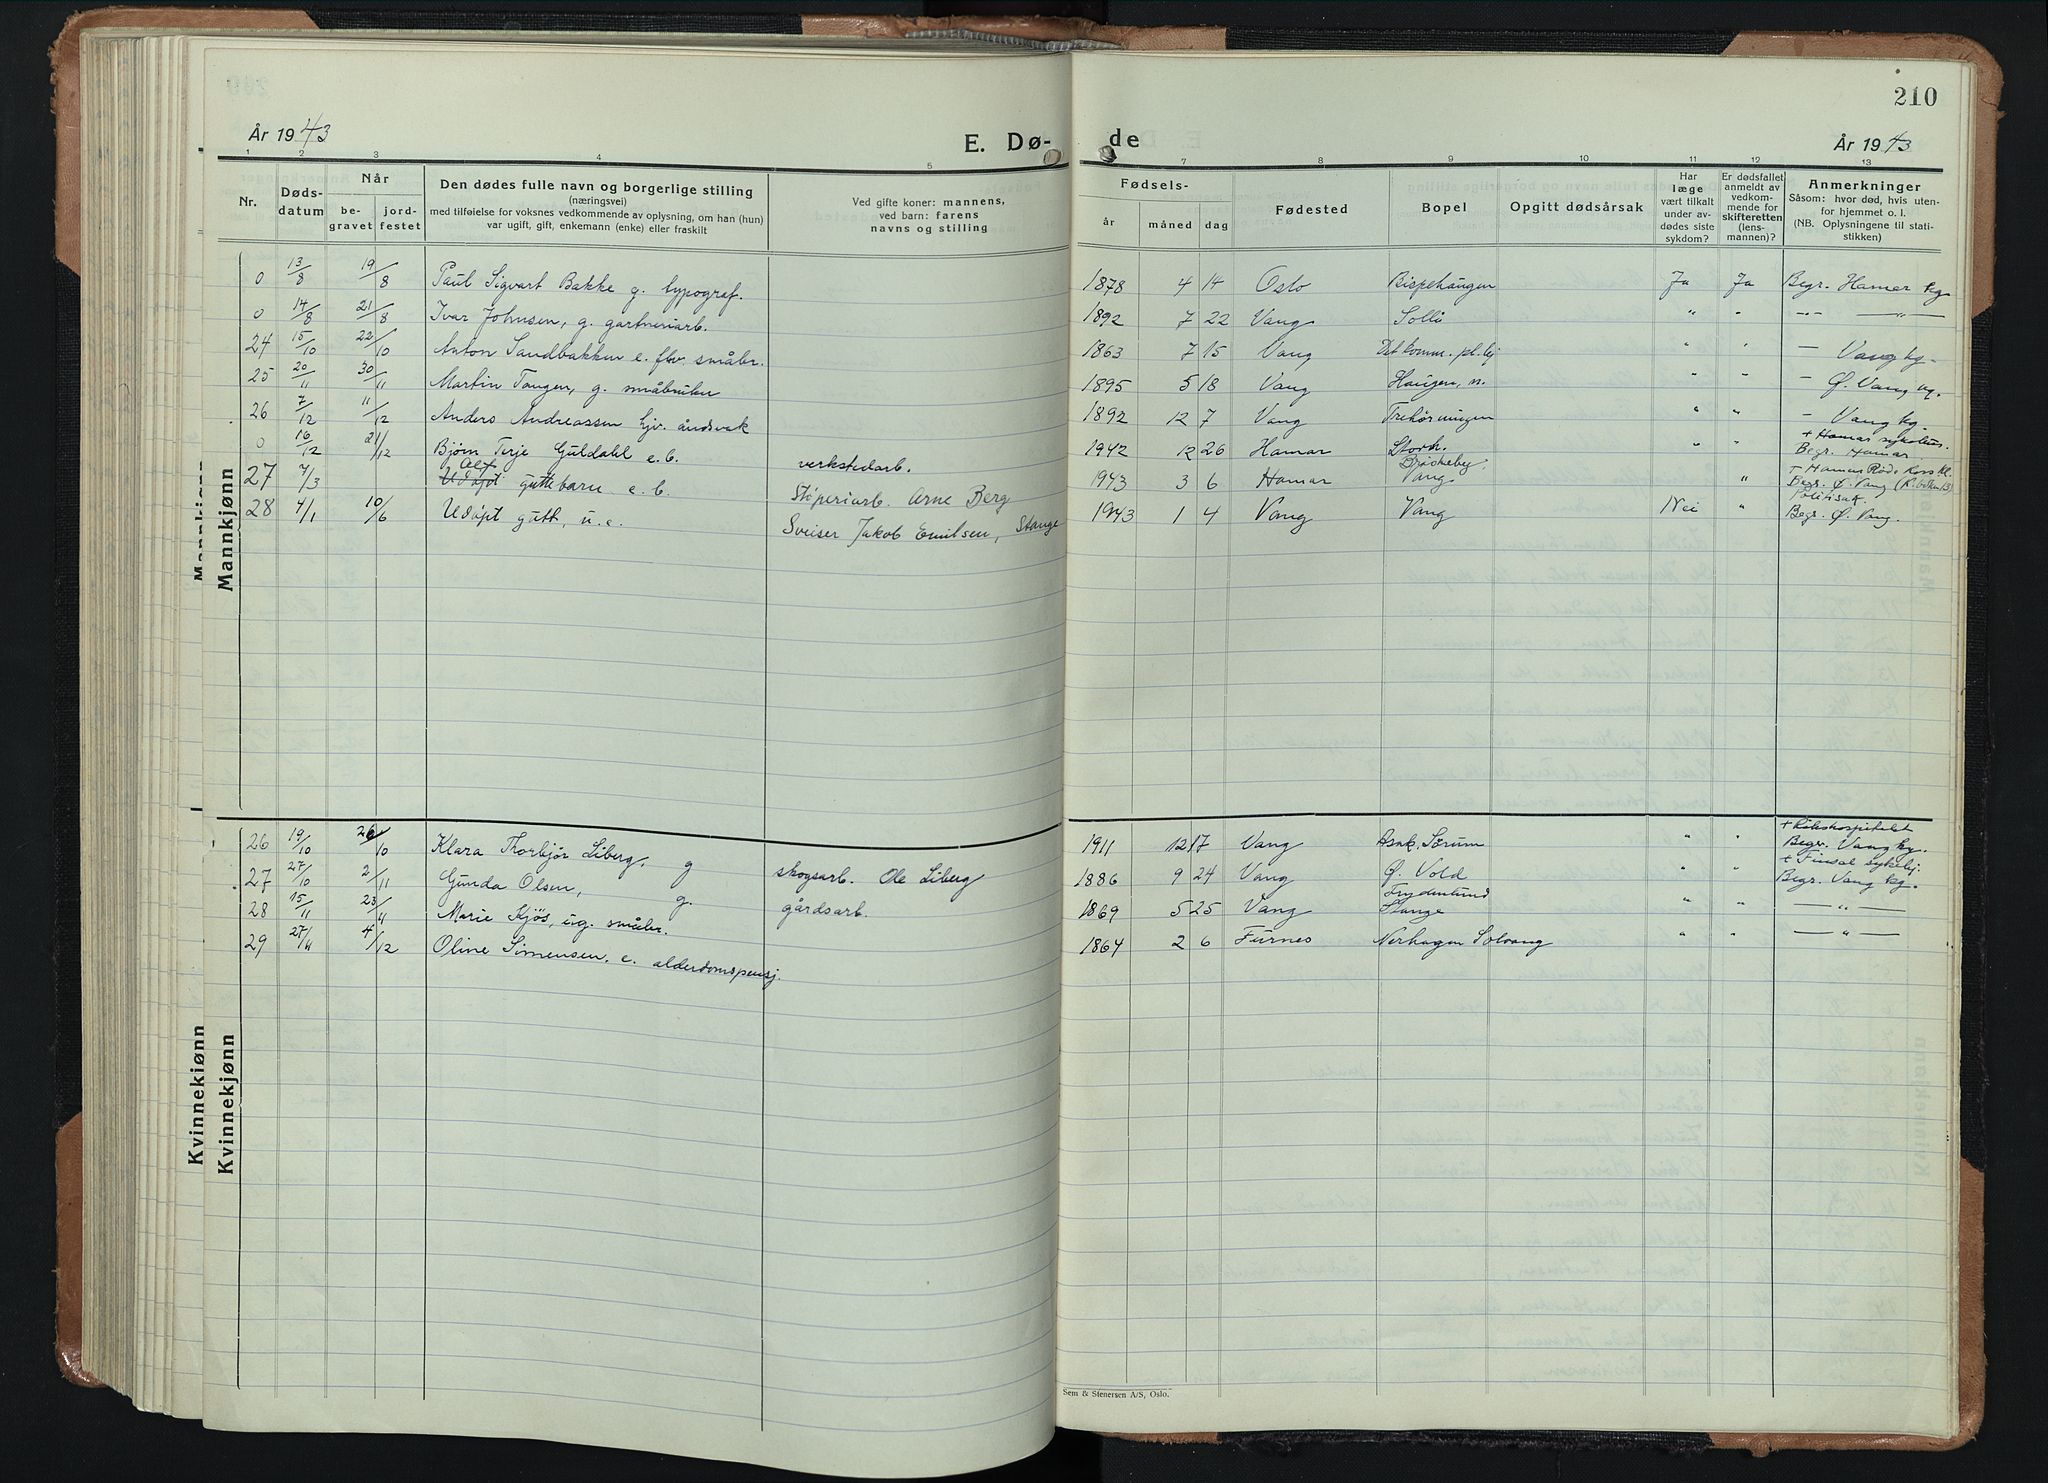 210
År 1943
E. Dø-
de
År 1943
1 2 3 4 5 7 8 9 10 11 12 13
Nr.
Døds-
datum
Når
be-
gravet
jord-
festet
Den dødes fulle navn og borgerlige stilling
(næringsvei)
med tilføielse for voksnes vedkommende av oplysning, om han (hun)
var ugift, gift, enkemann (enke) eller fraskilt
Ved gifte koner: mannens,
ved barn: farens
navns og stilling
Fødsels-
år måned dag
Fødested
Bopel
Opgitt dødsårsak
Har
læge
vært tilkalt
under av-
dødes siste
sykdom?
Er dødsfallet
anmeldt av
vedkom-
mende for
skifteretten
(lens-
mannen)?
Anmerkninger
Såsom: hvor død, hvis uten-
for hjemmet o. l.
(NB. Oplysningene til stati-
stikken)
Mannkjønn
Mannkjønn
0 13/8 19/8 Paul Sigvart Bakke g. typograf. 1878 4 14 Oslo Bispehaugen Ja Ja Begr. Hamar kg
0 14/8 21/8 Ivar Johnsen, g. gartneriarb. 1892 7 22 Vang Solli " " -"- -"-
24 15/10 22/10 Anton Sandbakken e. fhv. småbr. 1863 7 15 Vang Det komm. pl.hj " " - Vang kg.
25 20/11 30/11 Martin Tangen, g. småbruker 1895 5 18 Vang Haugen, n. " " - Ø. Vang kg.
26 7/12 11/12 Anders Andreassen hjv. åndsvak 1892 12 7 Vang Trehørningen " " - Vang kg.
0 16/12 21/12 Bjørn Terje Guldahl e.b. verkstedarb. 1942 12 26 Hamar Storh. " " + Hamar sykehus.
Begr. Hamar.
Alf
27 7/3 Udøpt guttebarn e.b. Støperiarb. Arne Berg 1943 3 6 Hamar Vang " + Hamar Røde Kors Kl.
Begr. Ø. Vang
28 4/1 10/6 Udøpt gutt, u.e. Sveiser Jakob Emilsen, Stange 1943 1 4 Vang Vang Nei "
Begr. Ø. Vang.
Kvinnekjønn
Kvinnekjønn
26 19/10 26/10 Klara Thorbjør Liberg, g skogsarb. Ole Liberg 1911 12 17 Vang Asak, Sørum " " + Rikshospitalet
Begr. Vang kg.
27 27/10 2/11 Gunda Olsen, g. gårdsarb. 1886 9 24 Vang Ø. Vold " " + Finsal sykehj.
Begr. Vang kg.
28 15/11 23/11 Marie Kjøs, ug. småbr. 1869 5 25 Vang Frydenlund
Stange " " — " —
29 27/11 4/12 Oline Simensen, e. alderdomspensj. 1864 2 6 Furnes Nerhagen Solvang " " — " —
Sem & Stenersen A/S, Oslo.